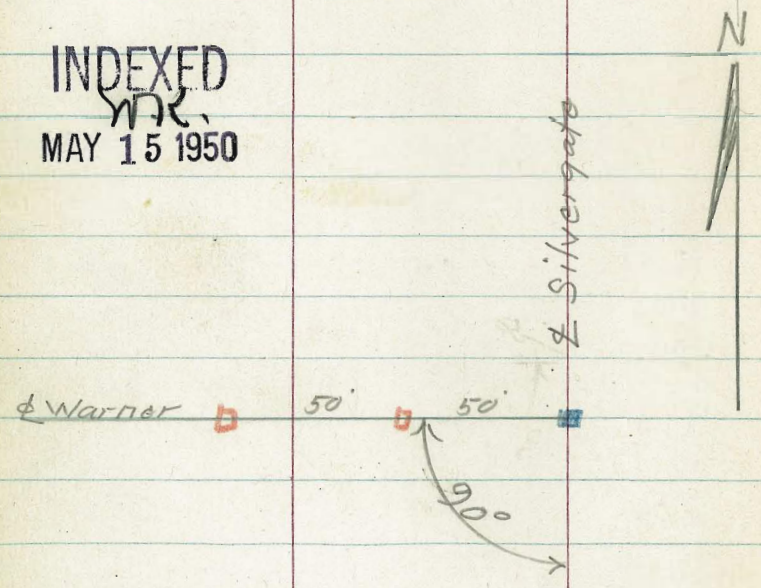 INDEXED
MAY 15 1950
N
℄ Silvergate
℄ Warner
50'
50'
90°